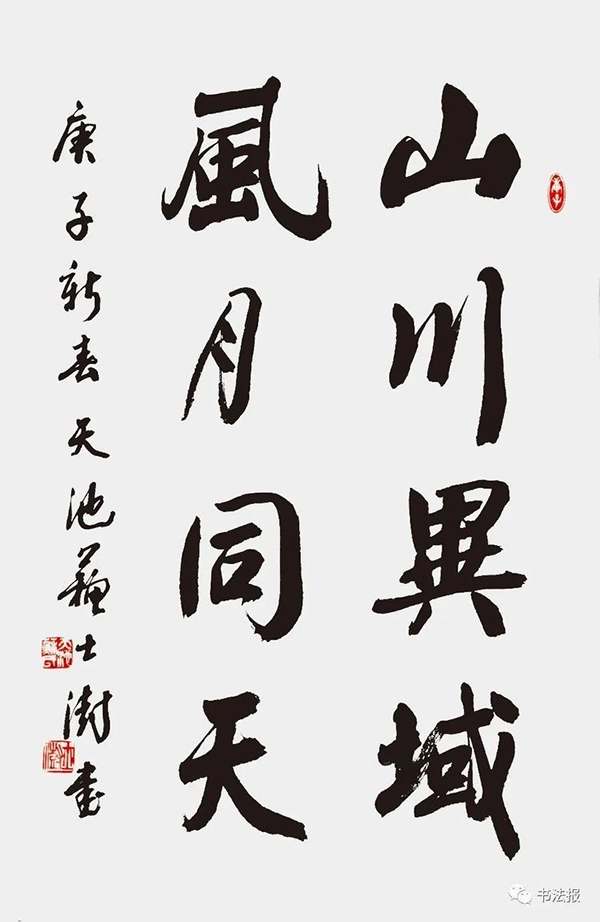 山川異域
風月同天
庚子新春天池蘇士澍書
书法报